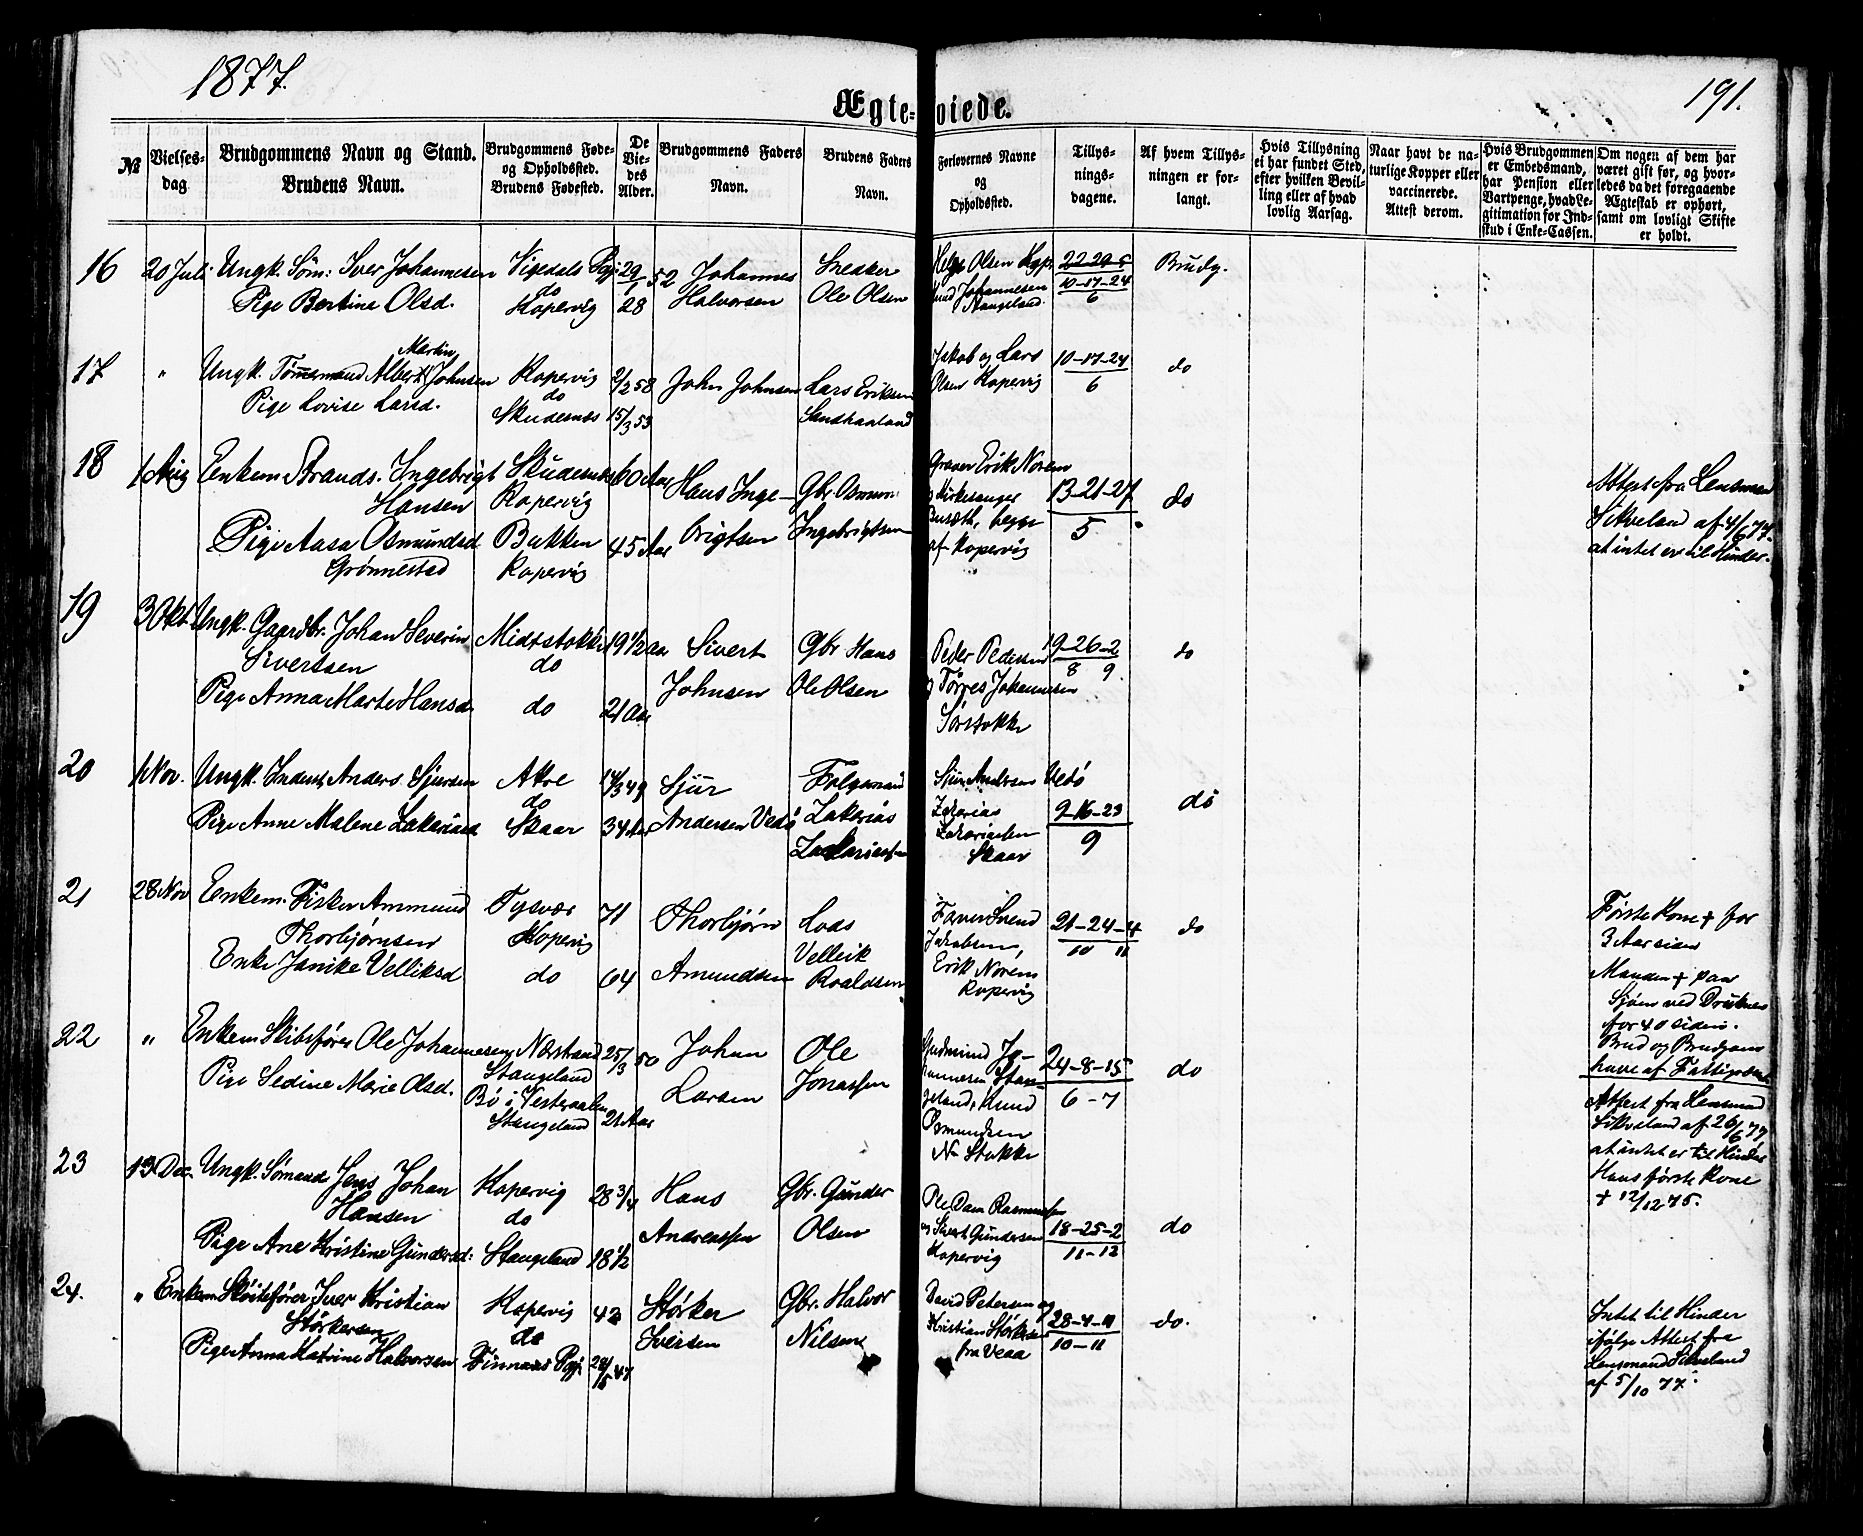 1877.
191.
Ægte-
viede.
№
Vielses-
dag.
Brudgommens Navn og Stand.
Brudens Navn.
Brudgommens Føde-
og Opholdssted.
Brudens Fødested.
De
Vie-
des
Alder.
Brudgommens Faders
Navn.
Brudens Faders
Navn.
Forlovernes Navne
og
Opholdssted.
Tillys-
nings-
dagene.
Af hvem Tillys-
ningen er for-
langt.
Hvis Tillysning
ei har fundet Sted,
efter hvilken Bevil-
ling eller af hvad
lovlig Aarsag.
Naar havt de na-
turlige Kopper eller
vaccinerede.
Attest derom.
Hvis Brudgommen
er Embedsmand,
har Pension eller
Vartpenge, hvad Le-
gitimation for Ind-
skud i Enke-Cassen.
Om nogen af dem har
været gift før, og hvor-
ledes da det foregaaende
Ægteskab er ophørt,
samt om lovligt Skifte
er holdt.
16
20 Juli
Ungk. Søm: Iver Johannesen
Pige Bertine Olsd.
do
Kopervig
29/1 52
28
Johannes
Halvorsen
Ole Olsen
Helge Olsen Kopr
Knud Johannesen
Stangeland.
22-29-5
10-17-24
6
Brudg.
17
"
Martin
Ungk. Tømmermand Albert Johnsen
Pige Lovise Larsd.
Kopervig
do
Skudesnæs
2/2 58
15/3 53
John Johnsen
Lars Eriksen
Sandhaaland
Jakob og Lars
Olsen Kopervig
10-17-24
6
do
18
1 Aug
Enkem Strands. Ingebrigt
Hansen
Pige Aasa Osmundsd
Grønnestad
Skudesnæs
Kopervig
Bukken
Kopervig
60 Aar
45 Aar
Hans Inge-
brigtsen
Gbr Osmun
Ingebrigtsen
Graver Erik Norem
og Kirkesanger
begge
af Kopervig
13-21-27
5
do
Attest fra Lensman
Sikveland af 4/6 77.
at intet er til Hinder.
19
3 Okt
Ungk. Gaardbr. Johan Severin
Sivertsen
Pige Anna Marte Hansd
Midtstokke
do
do
19 1/2 aar
21 Aar
Sivert
Johnsen
Gbr Hans
Ole Olsen
Peder Pedersen
og Tørres Johannesen
Sørstokke
19-26-2
8 9.
do
20
1 Nov.
Ungk. Inderst, Anders Sjursen
Pige Anne Malene Zakariasd
Akre
do
Skaar
14/3 49
34 Aar
Sjur
Andersen Vedø
Zakarias
Zakariassen
Sjur Andersen Vedø
Zakarias
Zakariassen
Skaar
9-16-23
9
do
21
28 Nov
Enkem. Fisker Ammund
Thorbjørnsen
Enke Janike Velliksd
Tysvær
Kopervig
do
71
64
Thorbjørn
Amundsen
Lods
Vellik
Roaldsen
Farver Svend
Jakobsen,
Erik Norem
Kopervig
21-24-4
10 11
do
Første Kone † for
3 Aar siden
Manden † paa
Sjøen ved Druknen
for 40 siden.
Brud og Brudgom
have af Fattigvæs
22
"
Enkem Skibsfører Ole Johannesen
Pige Sedine Marie Olsd.
Nærstrand
Stangeland
Bø i Vesteraalen
Stangeland
25/3 50
21 Aar
Johan
Larsen
Ole
Jonassen
Gudmund Jo-
hannesen Stan-
geland, Knud
Osmundsen
N. Stokke
24-8-15
6-7
do
Attest fra Lensmand
Sikveland af 26/6 77
at intet er til Hinder
Hans første Kone
† 12/12 75.
23
13 Dec.
Ungk. Sømand Jens Johan
Hansen
Pige Ane Kristine Gundersd:
Kopervig
do
Stangeland
28 3/4
18 1/2
Hans
Andreassen
Gbr. Gunder
Olsen
Ole Dam Rasmussen
og Sivert Gundersen
Kopervig
18-25-2
11-12
do
24.
"
Enkem Skøitefører Iver Kristian
Størkersen
Pige Anna Katrine Halvorsen
Kopervig
do
Finnaas Pgj.
42
28/5 47
Størker
Iversen
Gbr. Halvor
Nilsen
David Petersen og
Kristian Størkersen
fra Veaa
28-4-11
10-11
do.
Intet til Hinder
ifølge Attest fra
Lensmand Sikveland
af 5/10 77.